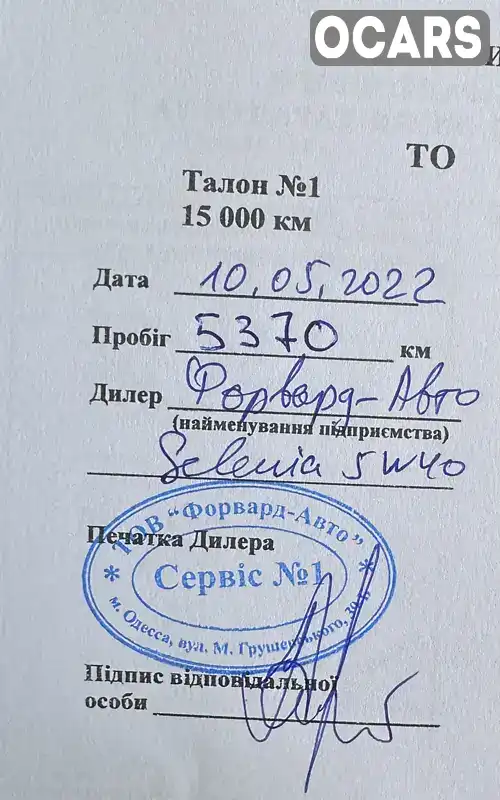 OCARS
ТО
Талон №1
15 000 км
Дата 10.05.2022
Пробіг 5370 км
Дилер Форвард-Авто
(найменування підприємства)
Selenia 5W40
ТОВ "Форвард-Авто"
Печатка Дилера
* Сервіс №1 *
м. Одесса, вул. М. Грушевського,
Підпис відповідальної
особи